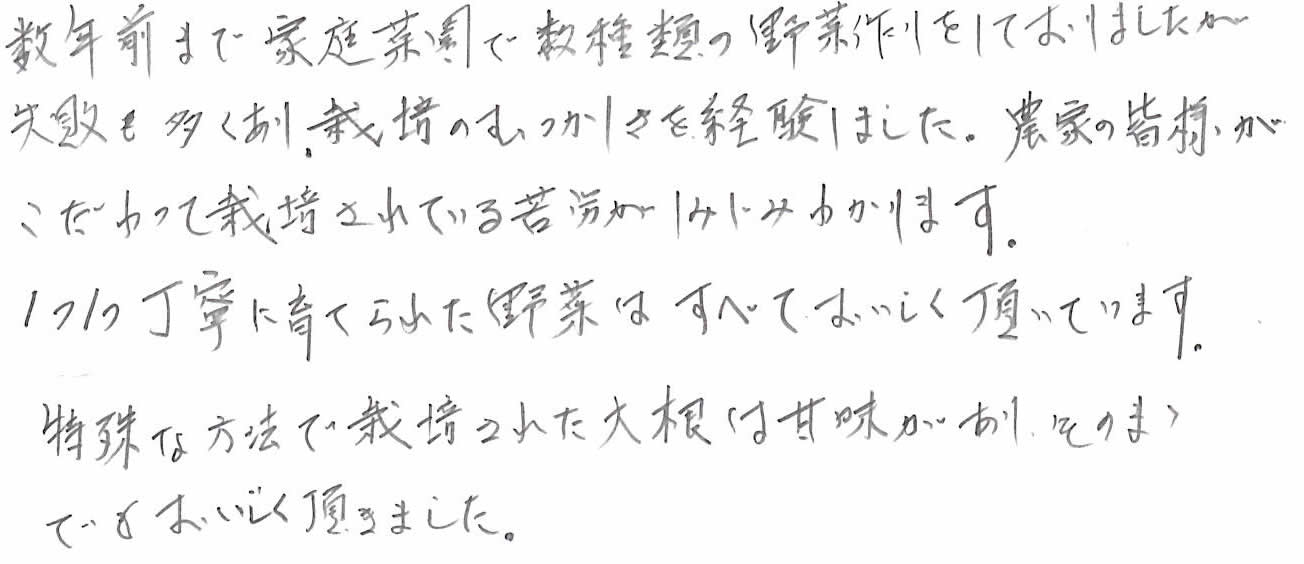 数年前まで家庭菜園で数種類の野菜作りをしておりましたが
失敗も多くあり、栽培のむつかしさを経験しました。農家の皆様が
こだわって栽培されている苦労がしみじみわかります。
1つ1つ丁寧に育てられた野菜はすべておいしく頂いています。
特殊な方法で栽培された大根は甘味があり、そのまゝ
でもおいしく頂きました。